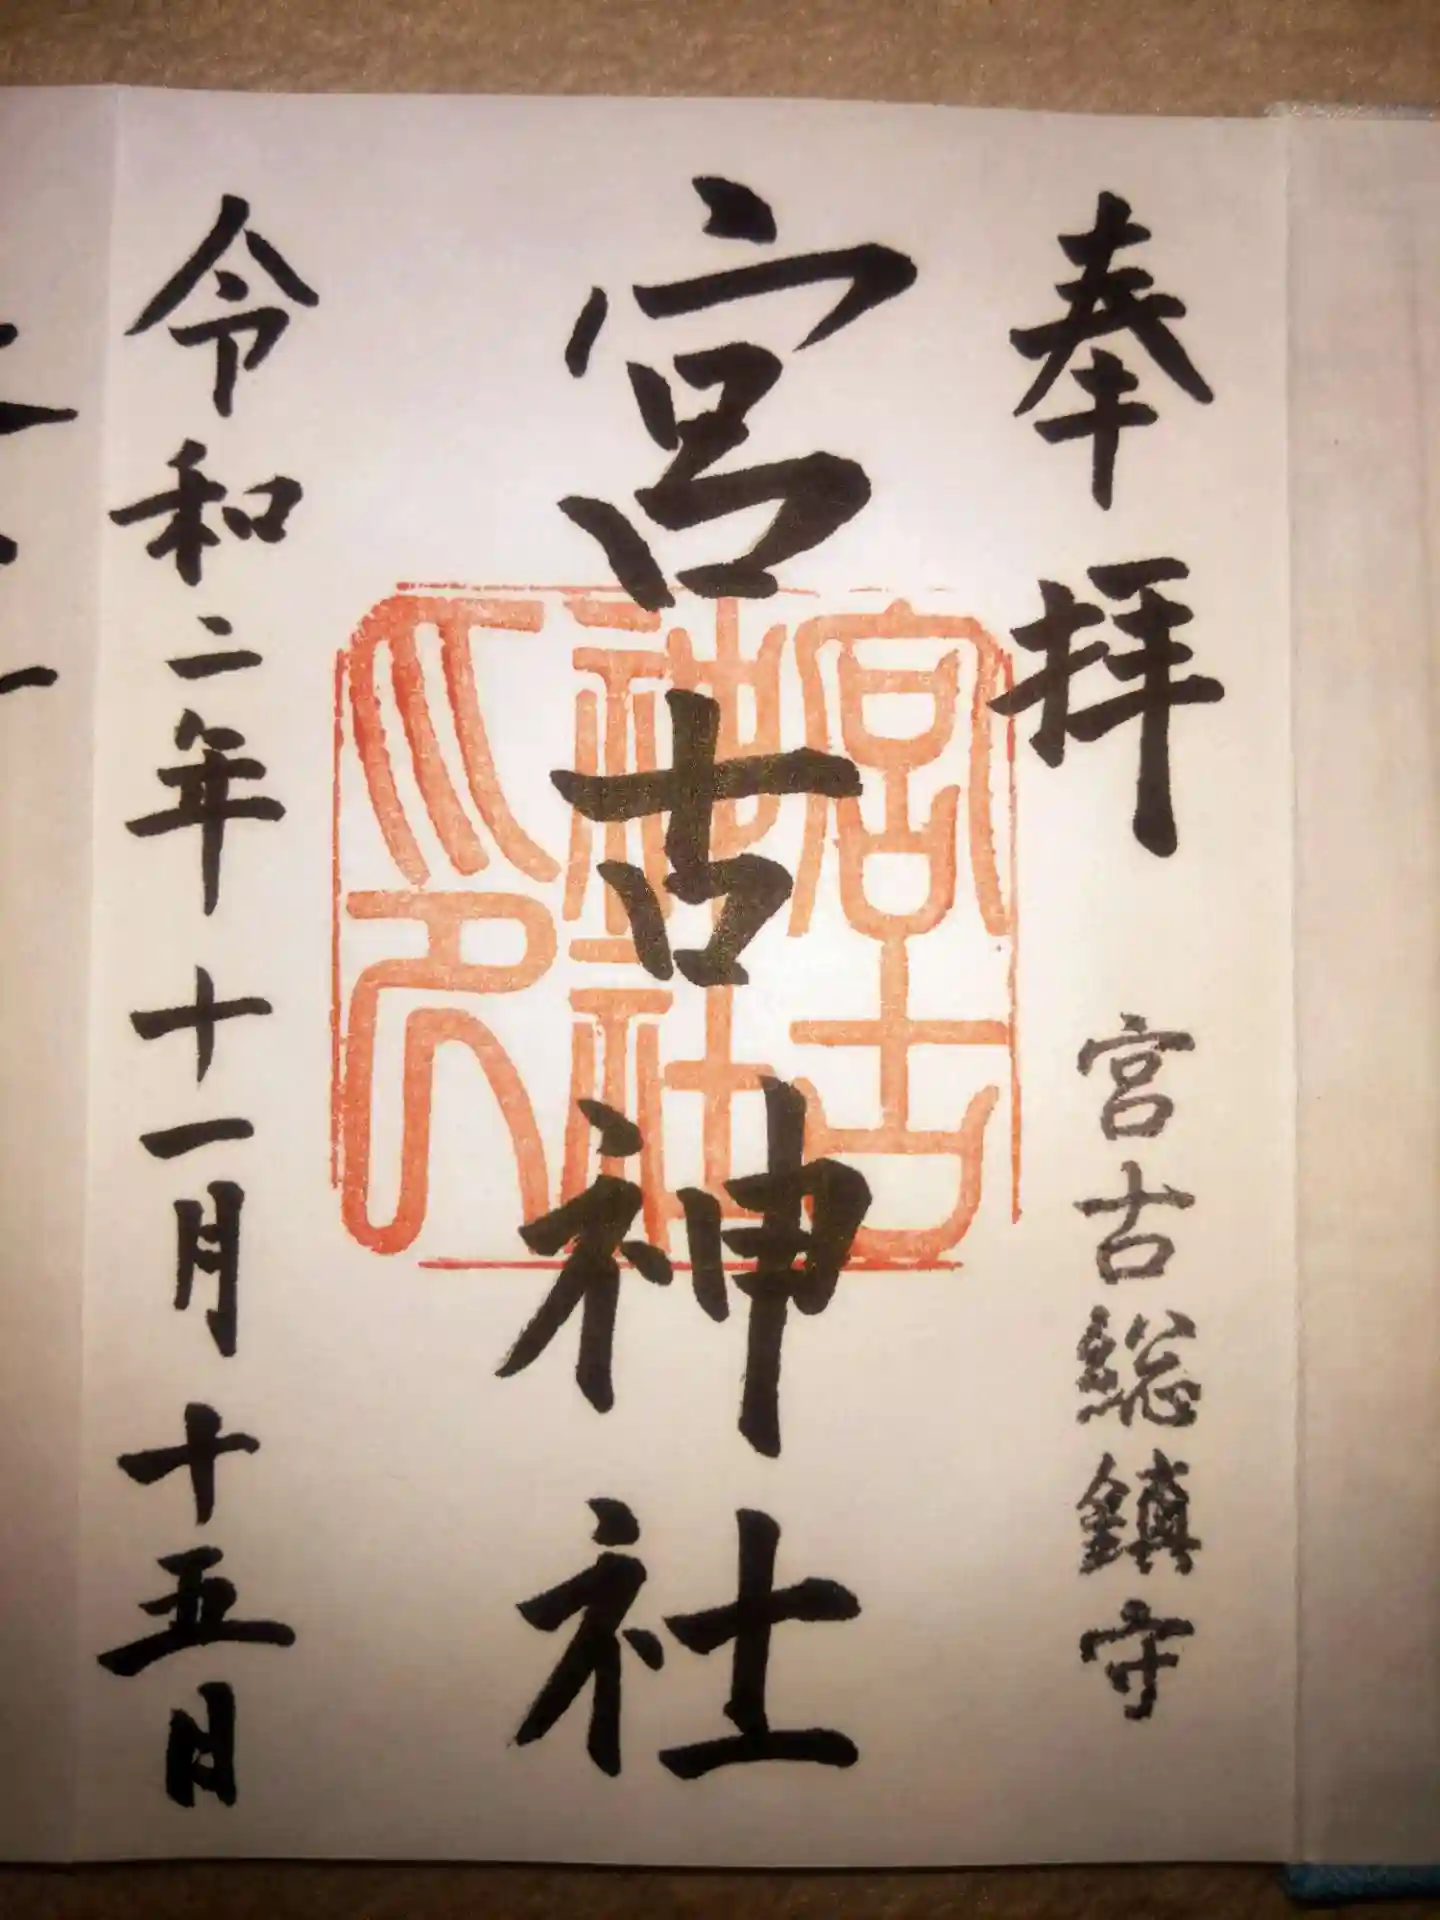 奉拝 宮古総鎮守
宮古神社
宮古神社之印
令和二年十一月十五日